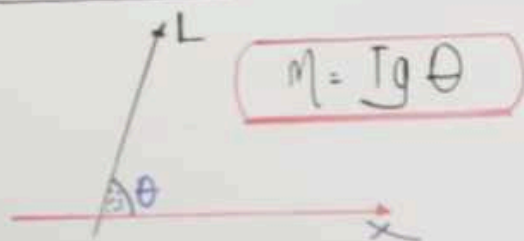 L
m = Tg θ
θ
x